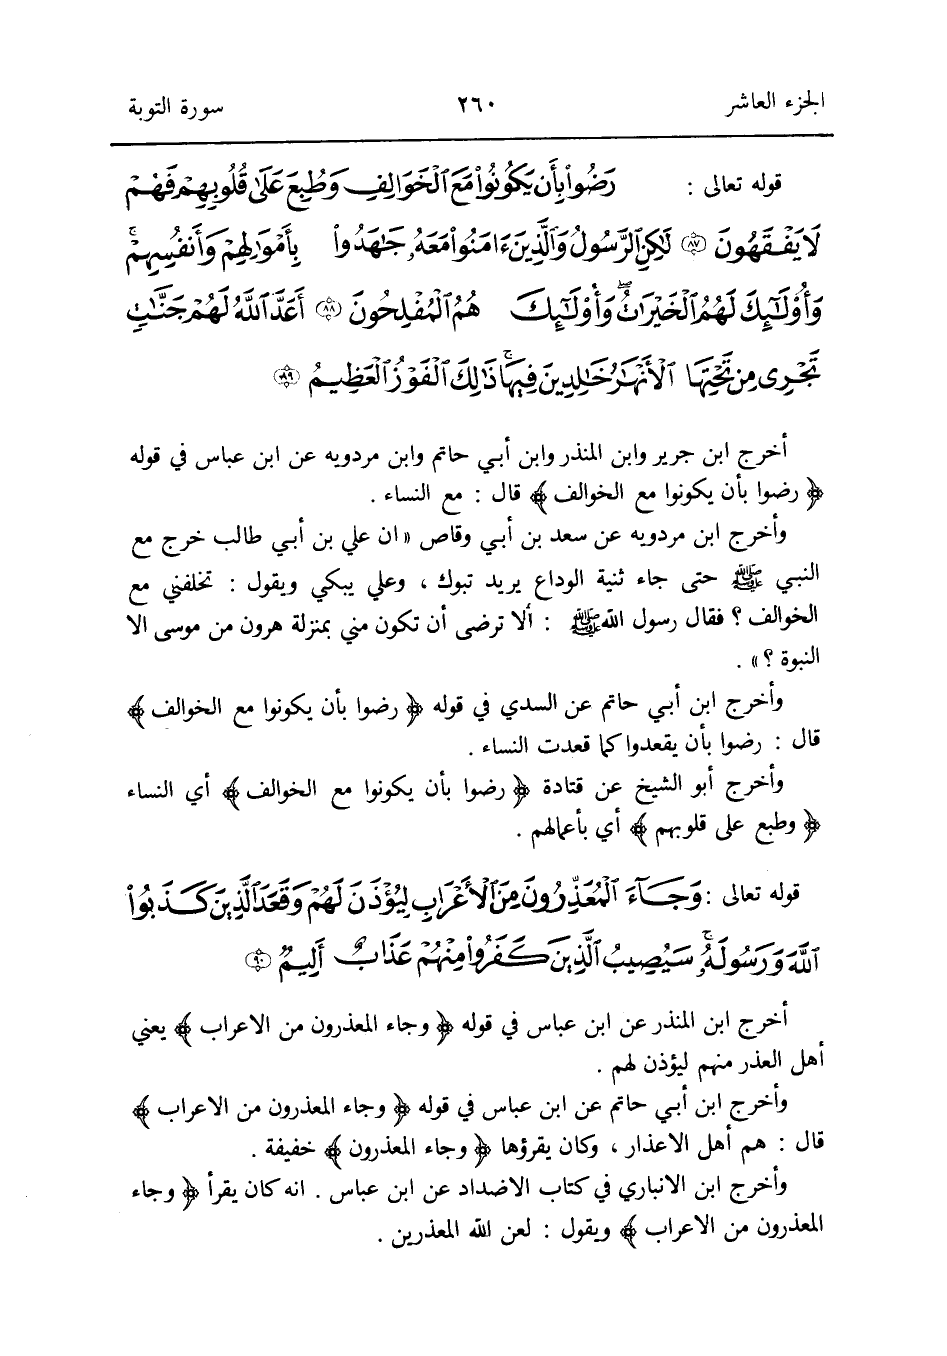 الجزء العاشر ٢٦٠ سورة التوبة
قوله تعالى : رَضُوا۟ بِأَن يَكُونُوا۟ مَعَ ٱلْخَوَالِفِ وَطُبِعَ عَلَىٰ قُلُوبِهِمْ فَهُمْ
لَا يَفْقَهُونَ ۝٨٧ لَٰكِنِ ٱلرَّسُولُ وَٱلَّذِينَ ءَامَنُوا۟ مَعَهُۥ جَٰهَدُوا۟ بِأَمْوَٰلِهِمْ وَأَنفُسِهِمْ ۚ
وَأُو۟لَٰٓئِكَ لَهُمُ ٱلْخَيْرَٰتُ ۖ وَأُو۟لَٰٓئِكَ هُمُ ٱلْمُفْلِحُونَ ۝٨٨ أَعَدَّ ٱللَّهُ لَهُمْ جَنَّٰتٍ
تَجْرِى مِن تَحْتِهَا ٱلْأَنْهَٰرُ خَٰلِدِينَ فِيهَا ۚ ذَٰلِكَ ٱلْفَوْزُ ٱلْعَظِيمُ ۝٨٩
أخرج ابن جرير وابن المنذر وابن أبي حاتم وابن مردويه عن ابن عباس في قوله
﴿ رضوا بأن يكونوا مع الخوالف ﴾ قال : مع النساء .
وأخرج ابن مردويه عن سعد بن أبي وقاص « ان علي بن أبي طالب خرج مع
النبي ﷺ حتى جاء ثنية الوداع يريد تبوك ، وعلي يبكي ويقول : تخلفني مع
الخوالف ؟ فقال رسول الله ﷺ : ألا ترضى أن تكون مني بمنزلة هرون من موسى الا
النبوة ؟ » .
وأخرج ابن أبي حاتم عن السدي في قوله ﴿ رضوا بأن يكونوا مع الخوالف ﴾
قال : رضوا بأن يقعدوا كما قعدت النساء .
وأخرج أبو الشيخ عن قتادة ﴿ رضوا بأن يكونوا مع الخوالف ﴾ أي النساء
﴿ وطبع على قلوبهم ﴾ أي بأعمالهم .
قوله تعالى : وَجَآءَ ٱلْمُعَذِّرُونَ مِنَ ٱلْأَعْرَابِ لِيُؤْذَنَ لَهُمْ وَقَعَدَ ٱلَّذِينَ كَذَبُوا۟
ٱللَّهَ وَرَسُولَهُۥ ۚ سَيُصِيبُ ٱلَّذِينَ كَفَرُوا۟ مِنْهُمْ عَذَابٌ أَلِيمٌ ۝٩٠
أخرج ابن المنذر عن ابن عباس في قوله ﴿ وجاء المعذرون من الاعراب ﴾ يعني
أهل العذر منهم ليؤذن لهم .
وأخرج ابن أبي حاتم عن ابن عباس في قوله ﴿ وجاء المعذرون من الاعراب ﴾
قال : هم أهل الاعذار ، وكان يقرؤها ﴿ وجاء المعذرون ﴾ خفيفة .
وأخرج ابن الانباري في كتاب الاضداد عن ابن عباس . انه كان يقرأ ﴿ وجاء
المعذرون من الاعراب ﴾ ويقول : لعن الله المعذرين .